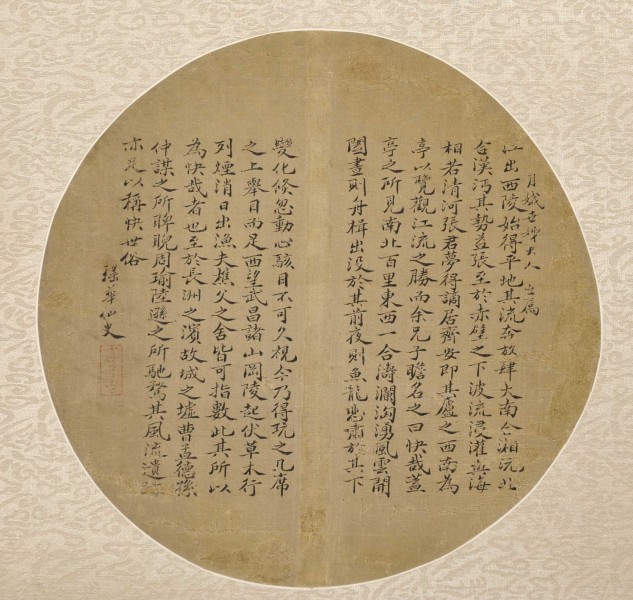 月娥世姊大人
江出西陵始得平地其流奔放肆大南合湘沅北
合漢沔其勢益張至於赤壁之下波流浸灌與海
相若清河張君夢得謫居齊安即其廬之西南為
亭以覽觀江流之勝而余兄子瞻名之曰快哉蓋
亭之所見南北百里東西一合濤瀾洶湧風雲開
闔晝則舟楫出没於其前夜則魚龍悲嘯於其下
變化倏忽動心駭目不可久視今乃得玩之几席
之上舉目而足西望武昌諸山岡陵起伏草木行
列煙消日出漁夫樵父之舍皆可指數此其所以
為快哉者也至於長洲之濱故城之墟曹孟德孫
仲謀之所睥睨周瑜陸遜之所馳騖其風流遺跡
亦足以稱快世俗
華仙史